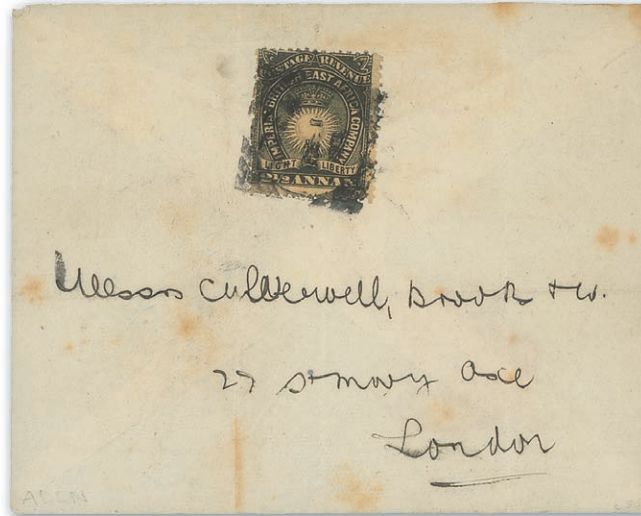 POSTAGE REVENUE
IMPERIAL BRITISH EAST AFRICA COMPANY
LIGHT LIBERTY
2½ ANNAS
Messrs Culverwell, Brook & Co.
27 St Mary Axe
London
ADEN